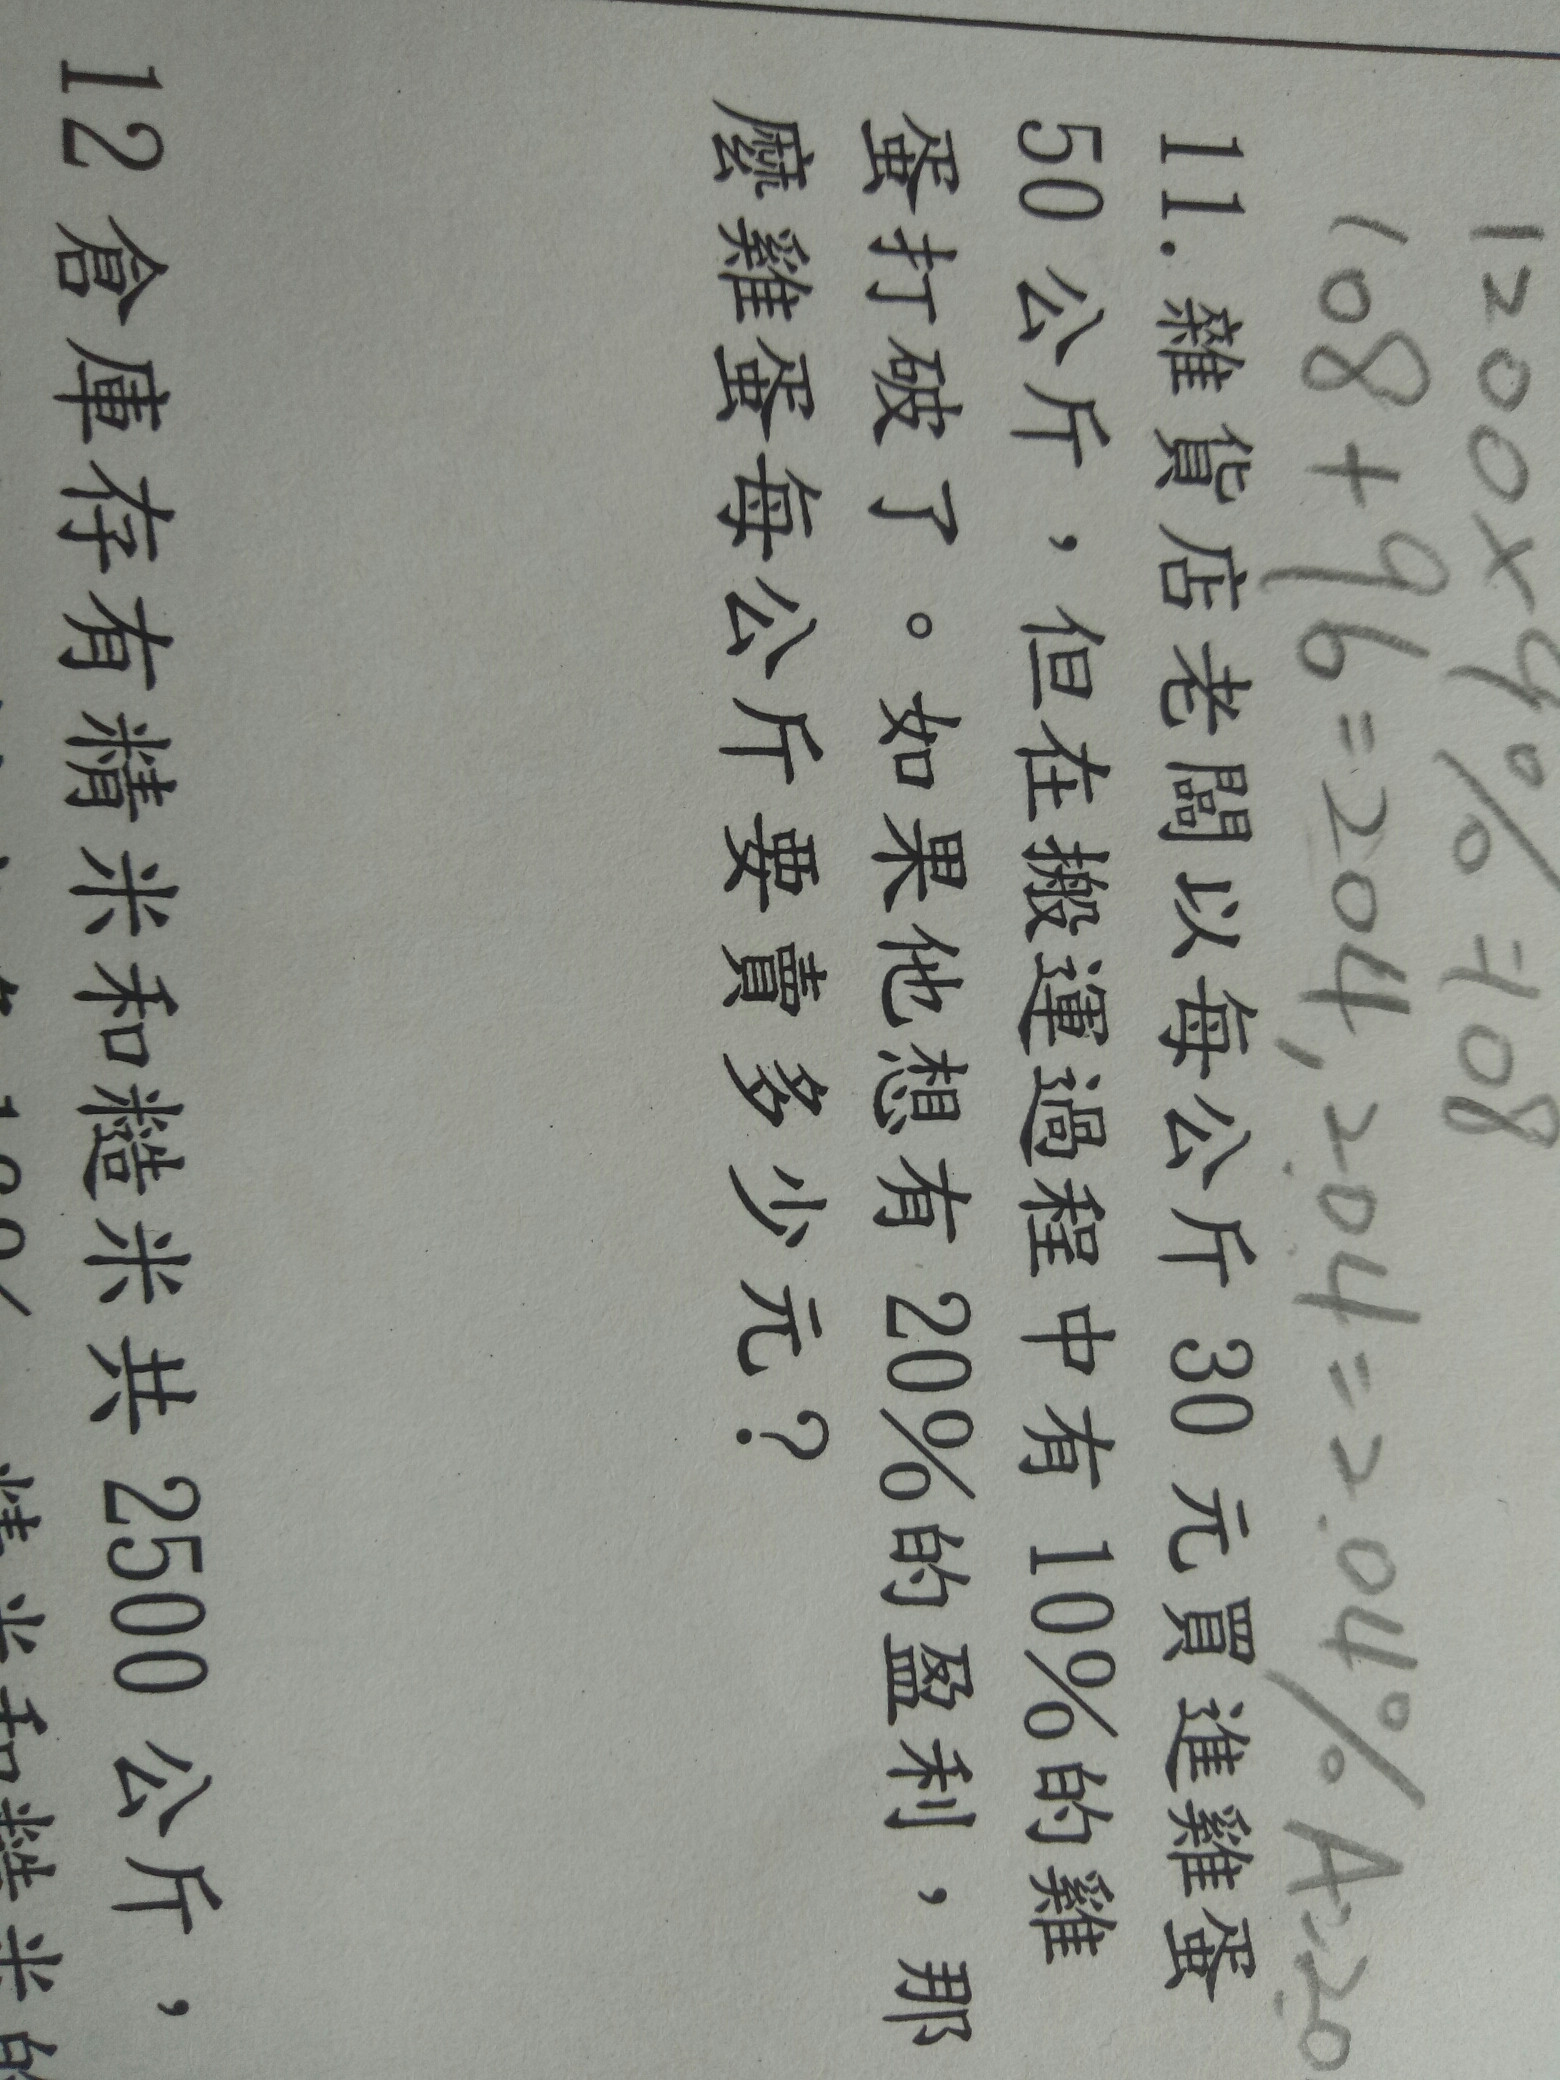 1200×9%=108
108+96=204, 204=2.04% A:20
11.雜貨店老闆以每公斤 30 元買進雞蛋
50 公斤，但在搬運過程中有 10%的雞
蛋打破了。如果他想有 20%的盈利，那
麼雞蛋每公斤要賣多少元?
12 倉庫存有精米和糙米共 2500 公斤，
精米和糙米的